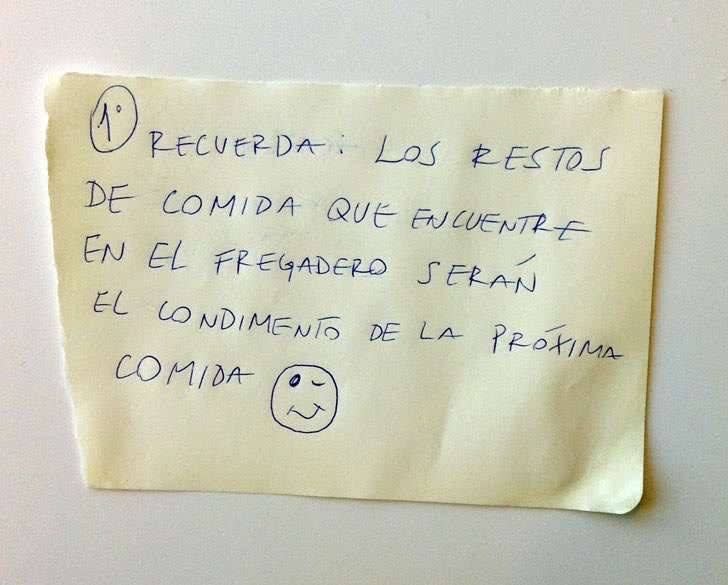 1º
RECUERDA: LOS RESTOS
DE COMIDA QUE ENCUENTRE
EN EL FREGADERO SERÁN
EL CONDIMENTO DE LA PRÓXIMA
COMIDA